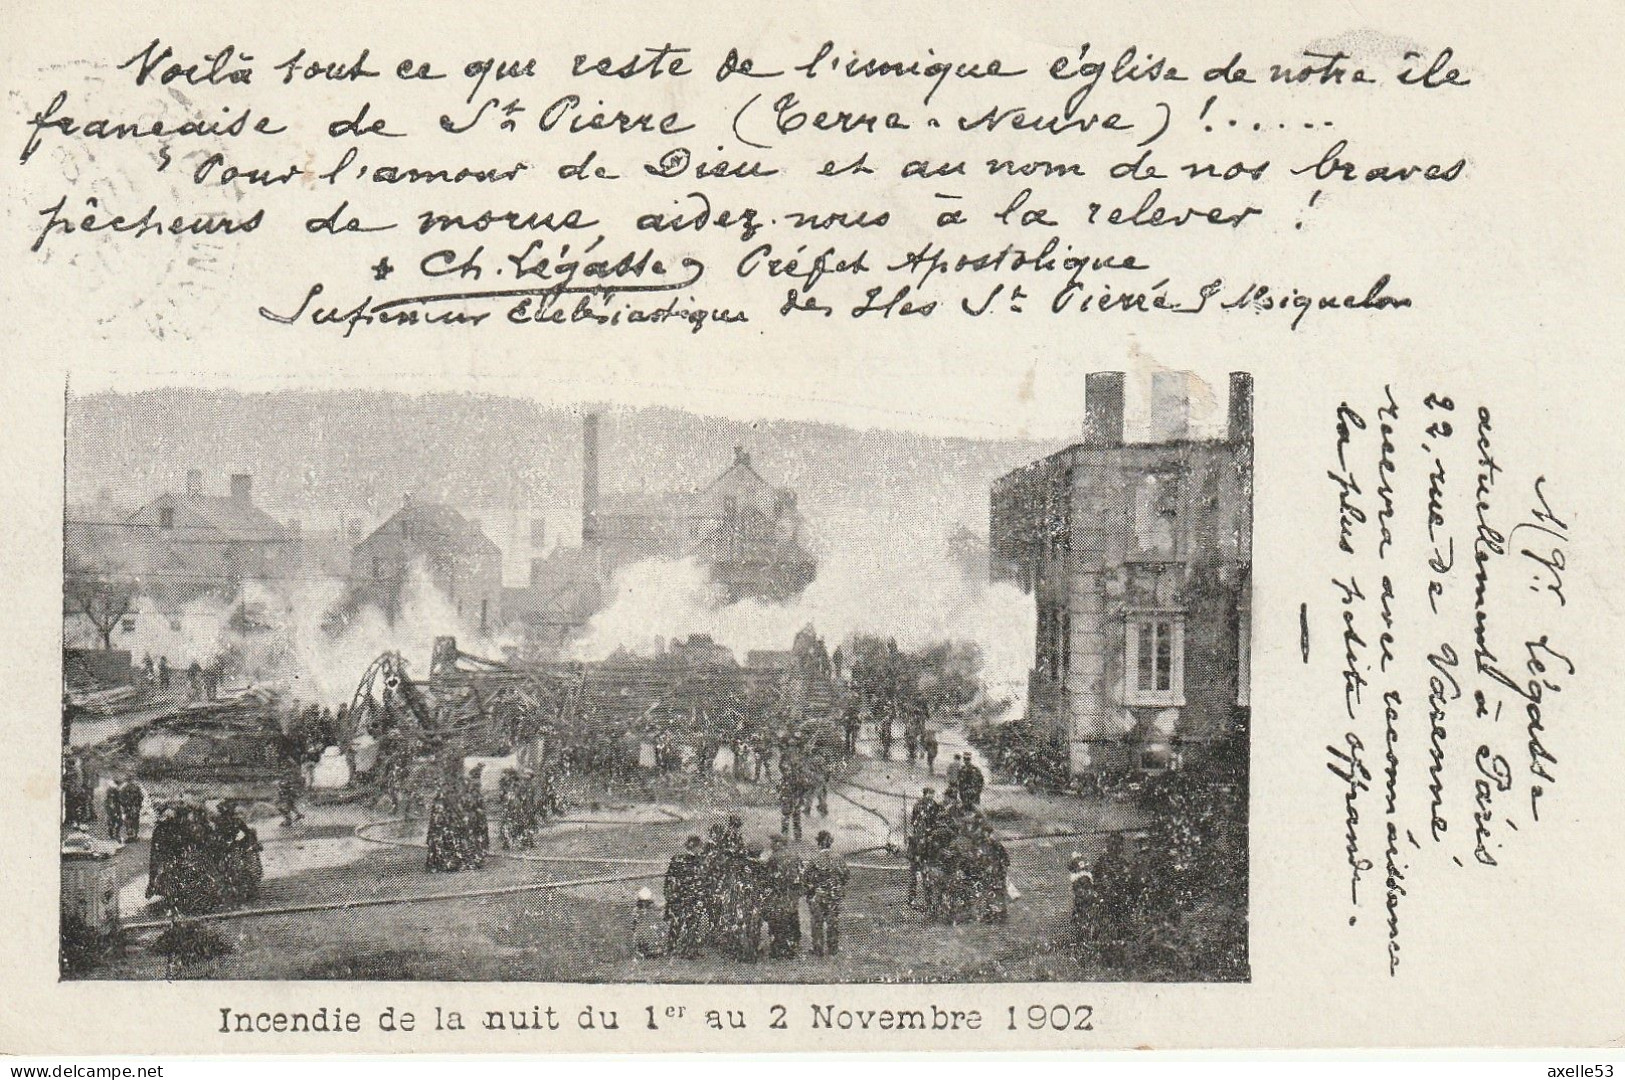 Voilà tout ce qui reste de l'unique église de notre île
française de St Pierre (Terre-Neuve) !......
Pour l'amour de Dieu et au nom de nos braves
pêcheurs de morue, aidez-nous à la relever !
Ch. Légasse, Préfet Apostolique
Supérieur Ecclésiastique des Iles St Pierre & Miquelon
Mgr. Légasse
actuellement à Paris
22, rue de Varenne
recevra avec reconnaissance
la plus petite offrande.
Incendie de la nuit du 1er au 2 Novembre 1902
delcampe.net
axelle53